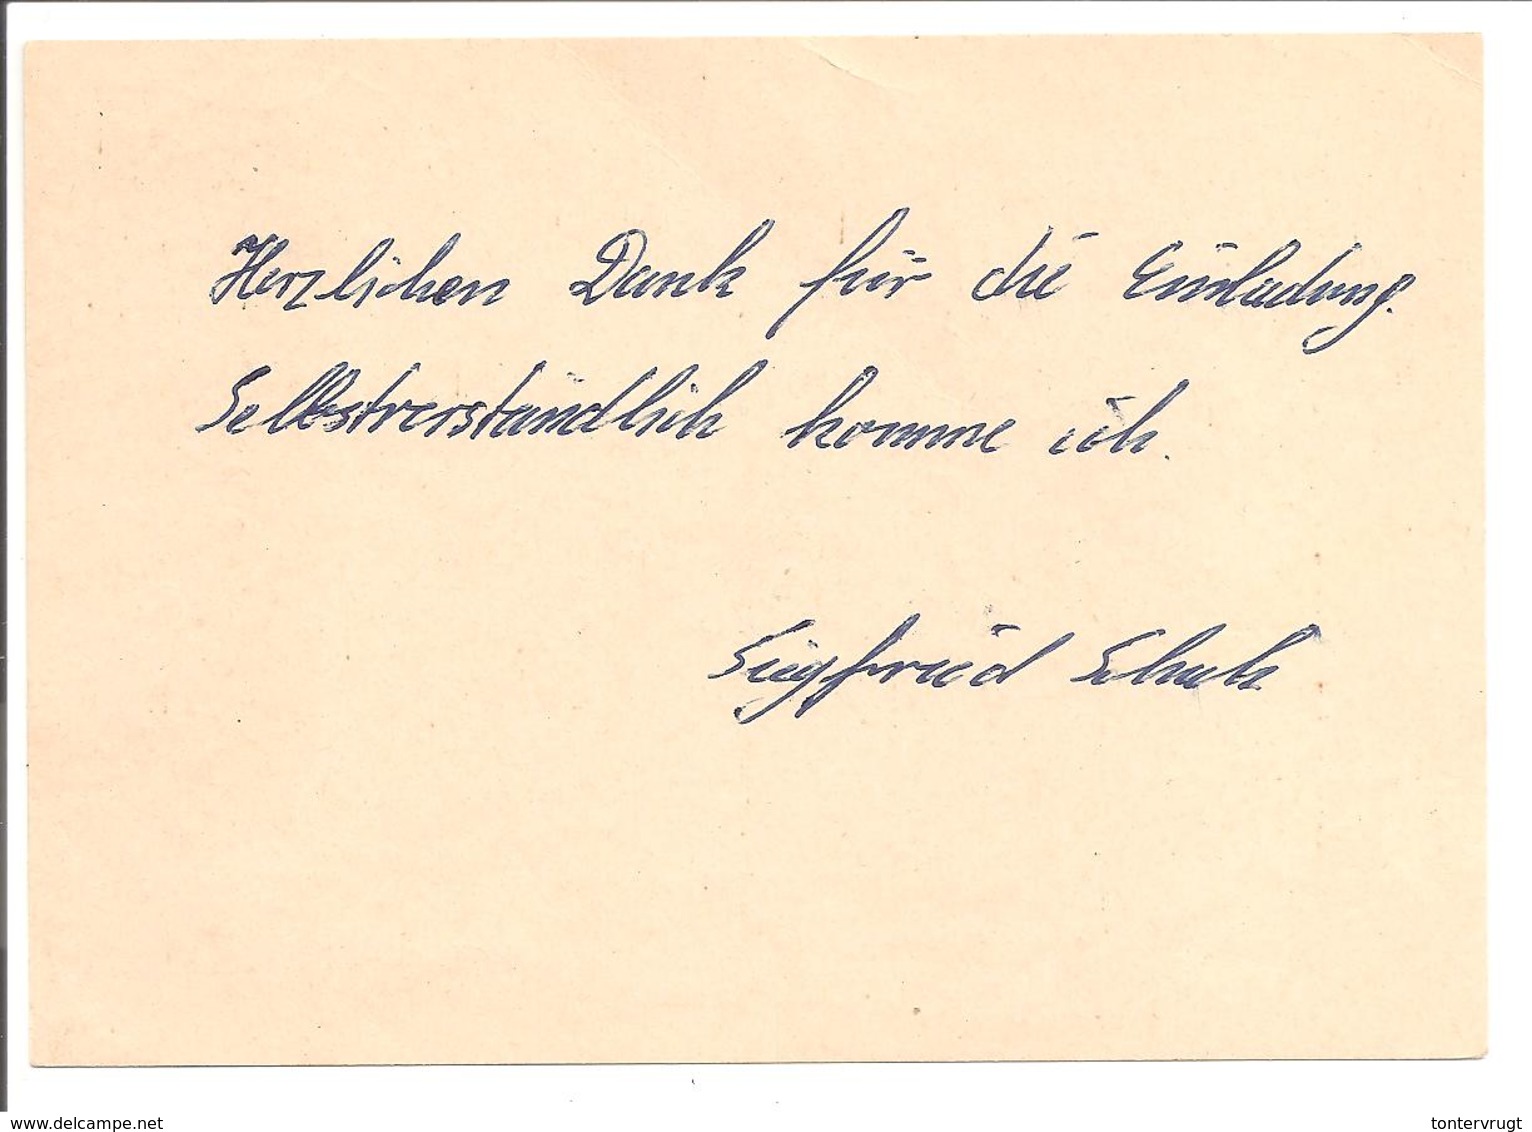 Herzlichen Dank für die Einladung.
Selbstverständlich komme ich.
Siegfried Schuh
delcampe.net
tontervrugt